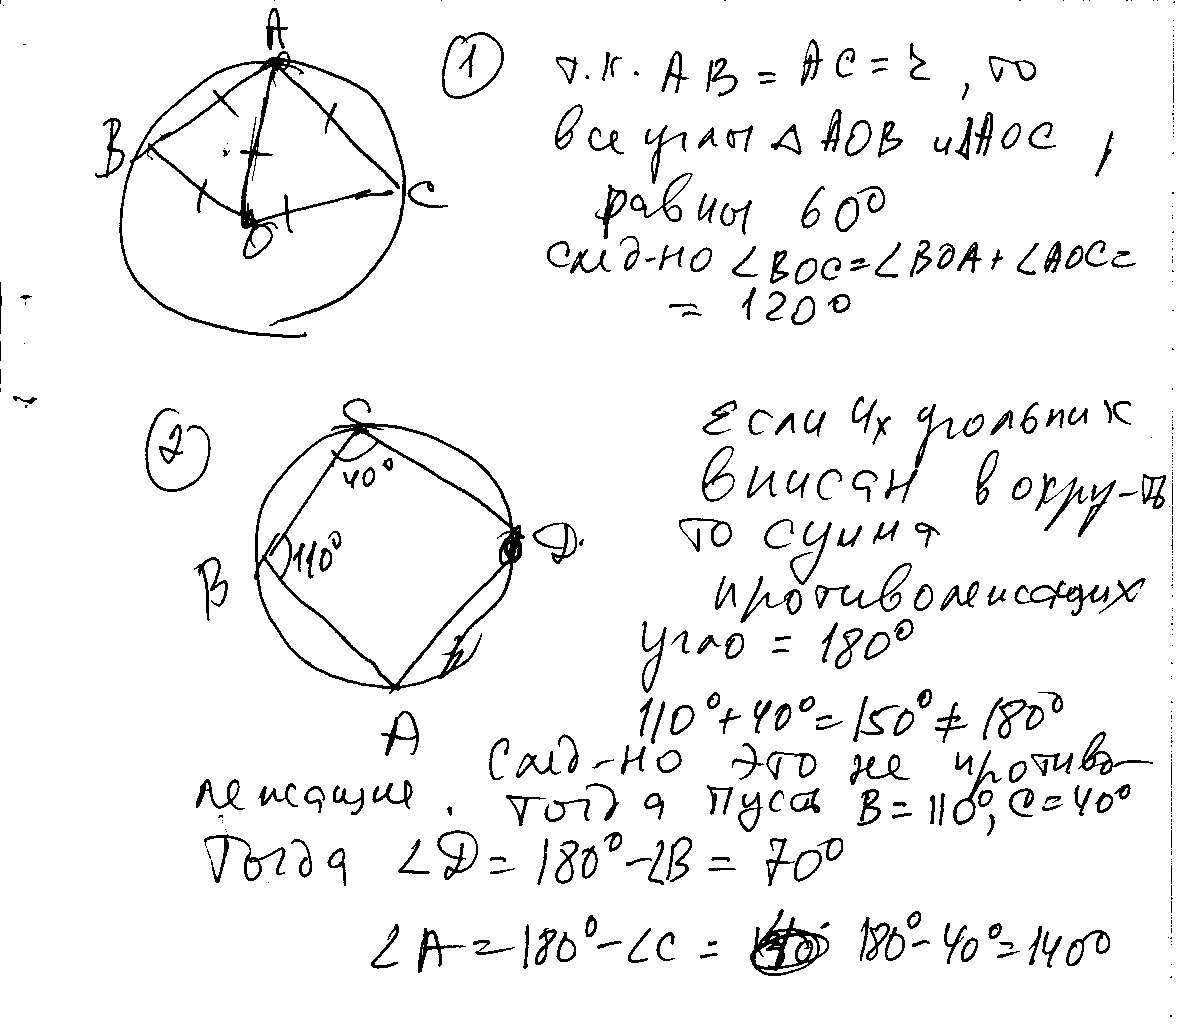 A
B
C
O
1
т.к. AB = AC = r, то
все углы △ AOB и △AOC,
равны 60°
след-но ∠BOC = ∠BOA + ∠AOC =
= 120°
2
C
40°
B
110°
D
A
Если 4х угольник
вписан в окру-ть
то сумма
противолежащих
угло = 180°
110° + 40° = 150° ≠ 180°
След-но это не противо-
лежащие. Тогда пусть B = 110°, C = 40°
Тогда ∠D = 180° - ∠B = 70°
∠A = 180° - ∠C = 180° - 40° = 140°